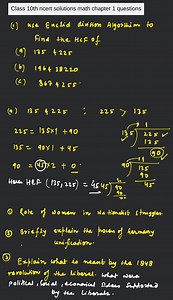 Class 10th ncert solutions math chapter 1 questions
(1) use Euclid division Algorithm to
Find the HCF of
(a) 135 & 225
(b) 196 & 38220
(c) 867 & 255
(a) 135 & 225 : 225 > 135
225 = 135×1 + 90
135 = 90×1 + 45
90 = 45×2 + 0
Hence HCF (135, 225) = 45
1
135 225
135
90
90 135 1
90
45
45 90 2
90
① Role of women in Nationalist struggle.
② Briefly explain the process of Germany
unification.
③ Explain what is meant by the 1848
revolution of the liberal. What were
political, social, economical Ideas supported
by the liberals.